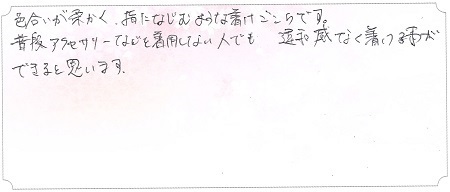 色合いが柔かく、指になじむような着けごこちです。
普段アクセサリーなどを着用しない人でも 違和感なく着ける事が
できると思います。